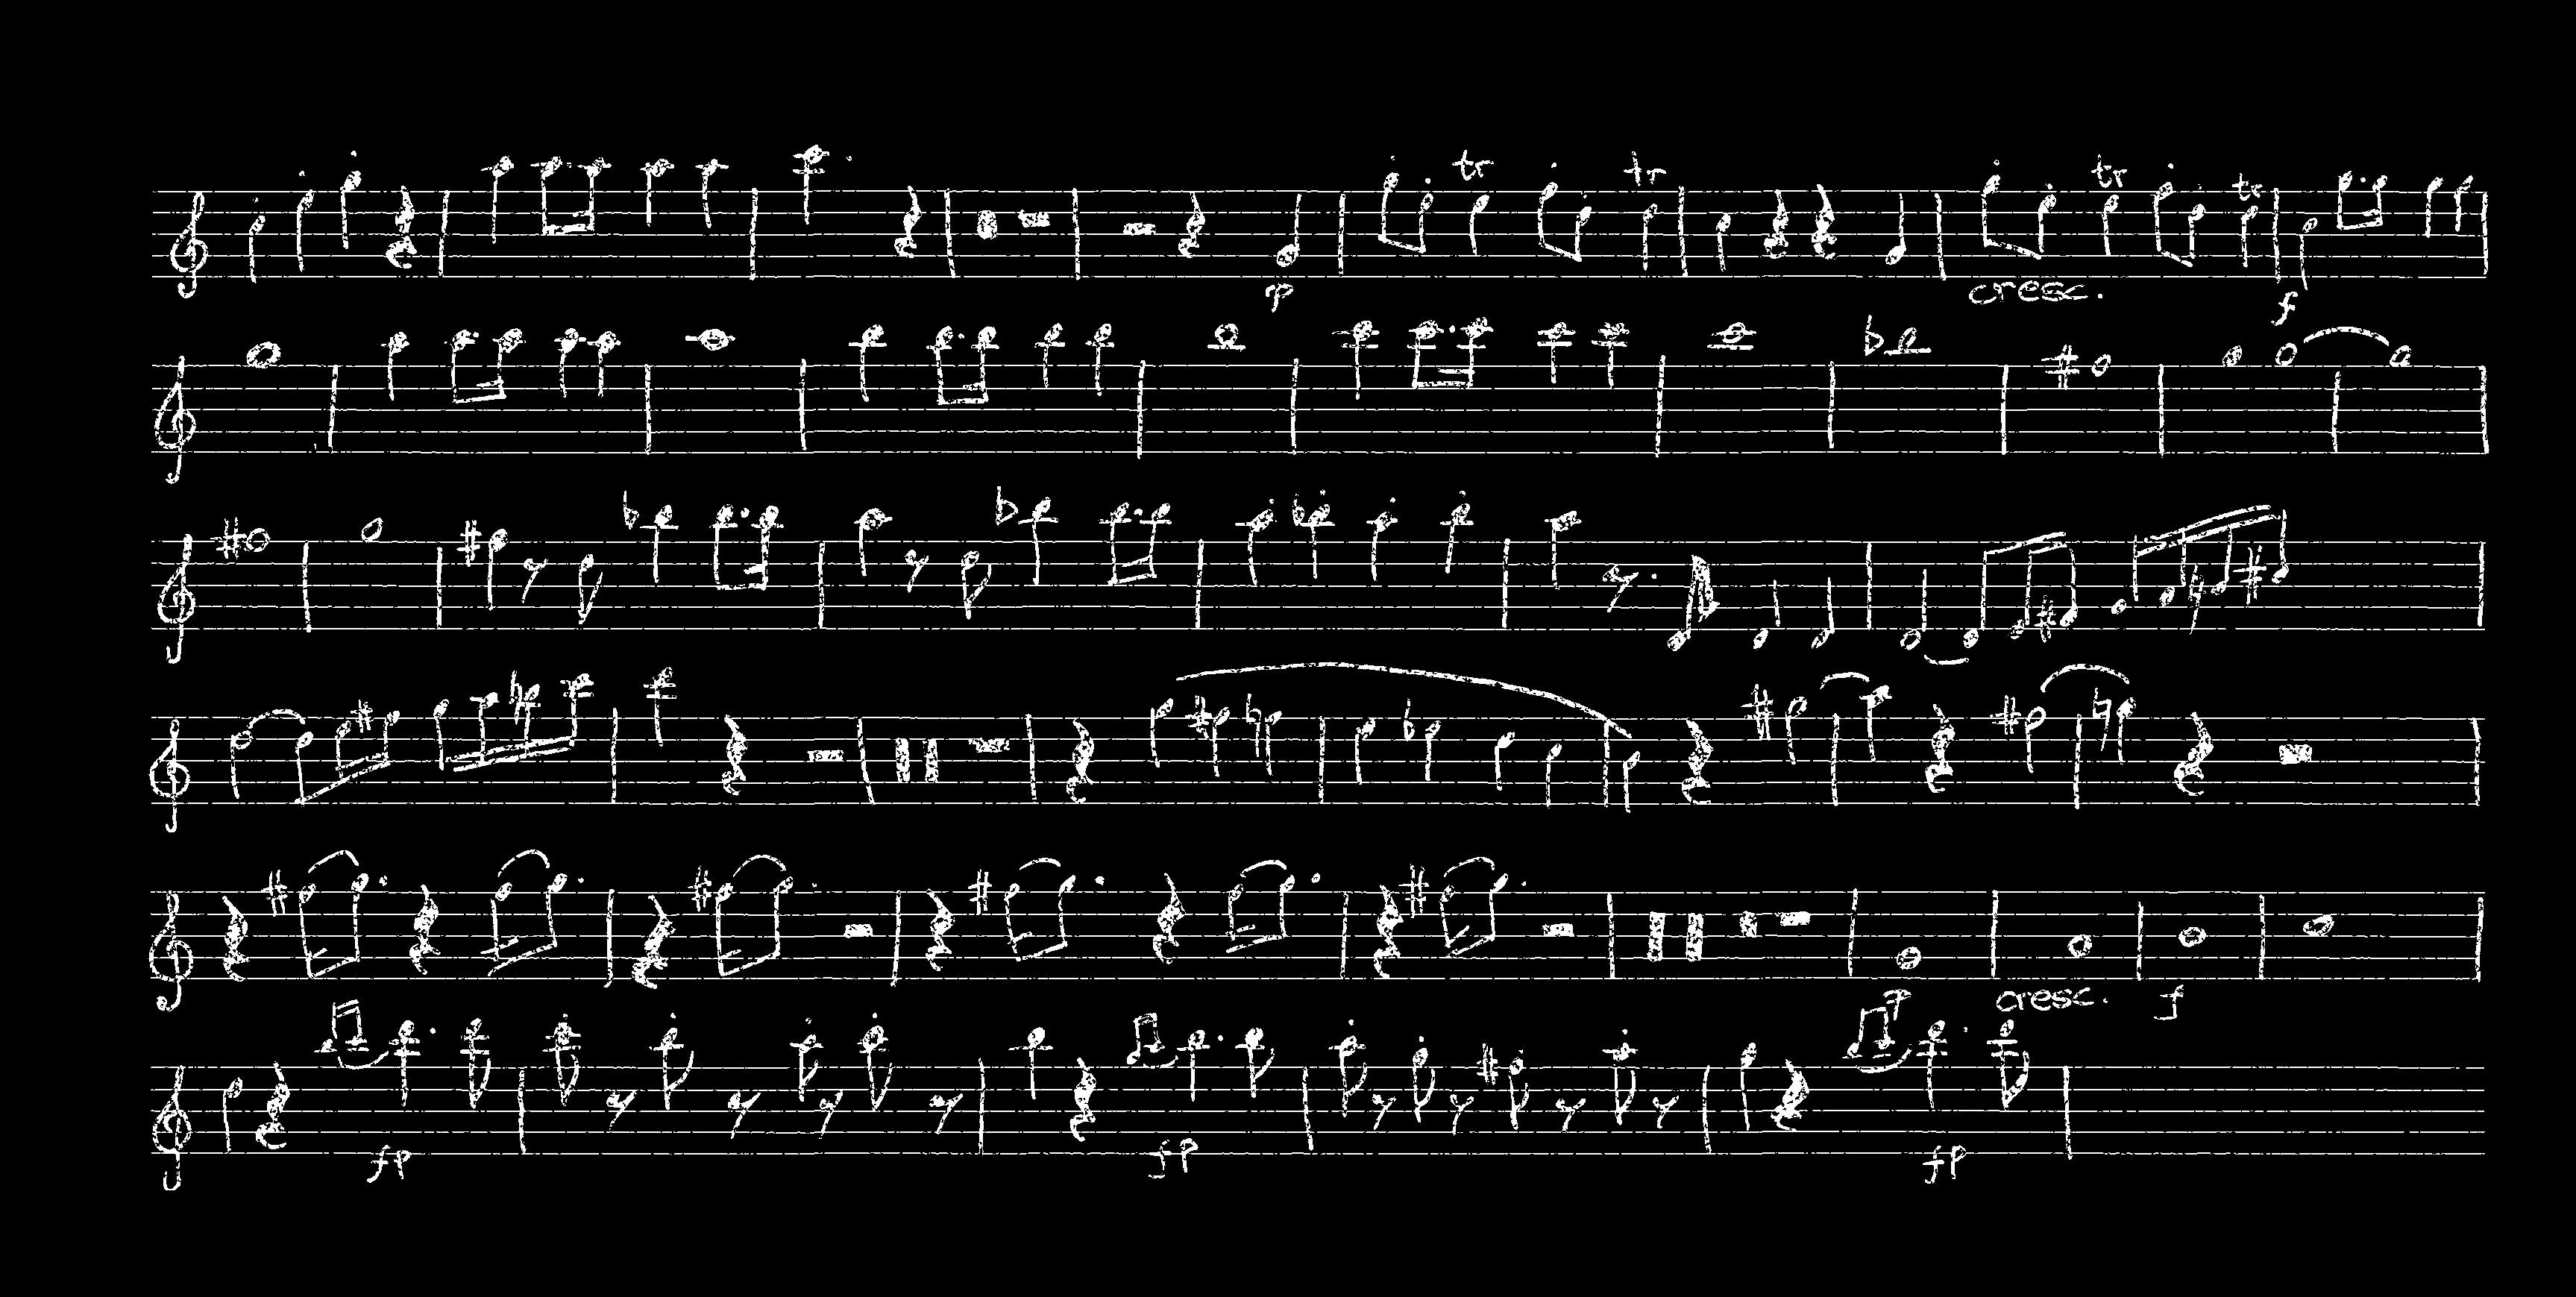 tr tr tr tr
p cresc. f
p cresc. f
fp fp fp